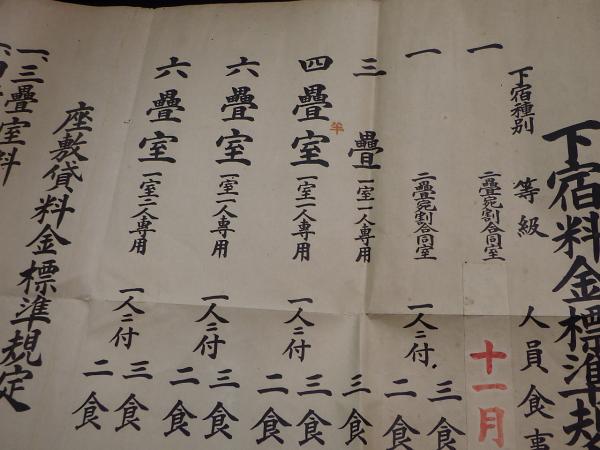 下宿料金標準規
下宿種別 等級 人員食事
一 二疊宛割合同室 十一月
一 二疊宛割合同室 一人ニ付 三食 二食
三疊 一室一人専用 三食
四疊半室 一室一人専用 一人ニ付 三食 二食
六疊室 一室一人専用 一人ニ付 三食 二食
六疊室 一室二人専用 一人ニ付 三食 二食
座敷貸料金標準規定
一、三疊室料